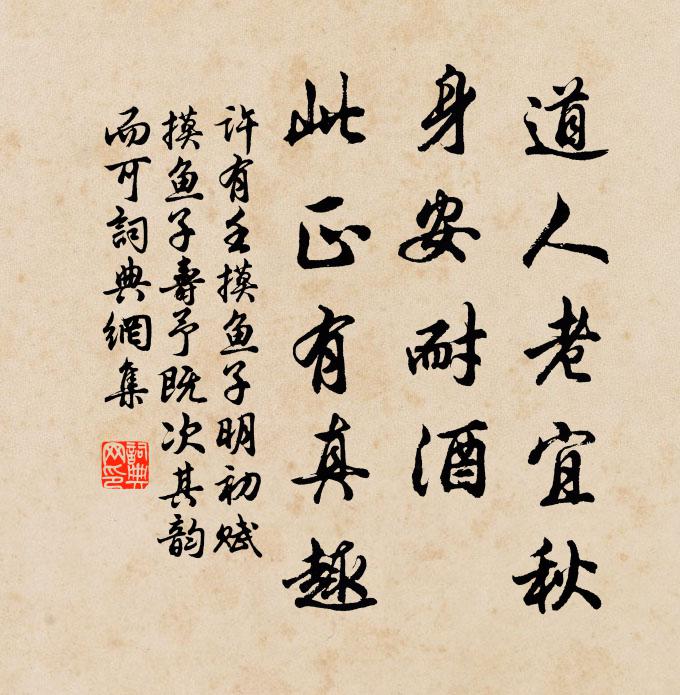 道人老宜秋
身安耐酒
此正有真趣
许有壬摸鱼子明初赋
摸鱼子寿予既次其韵
而可詞典網集
詞典网印